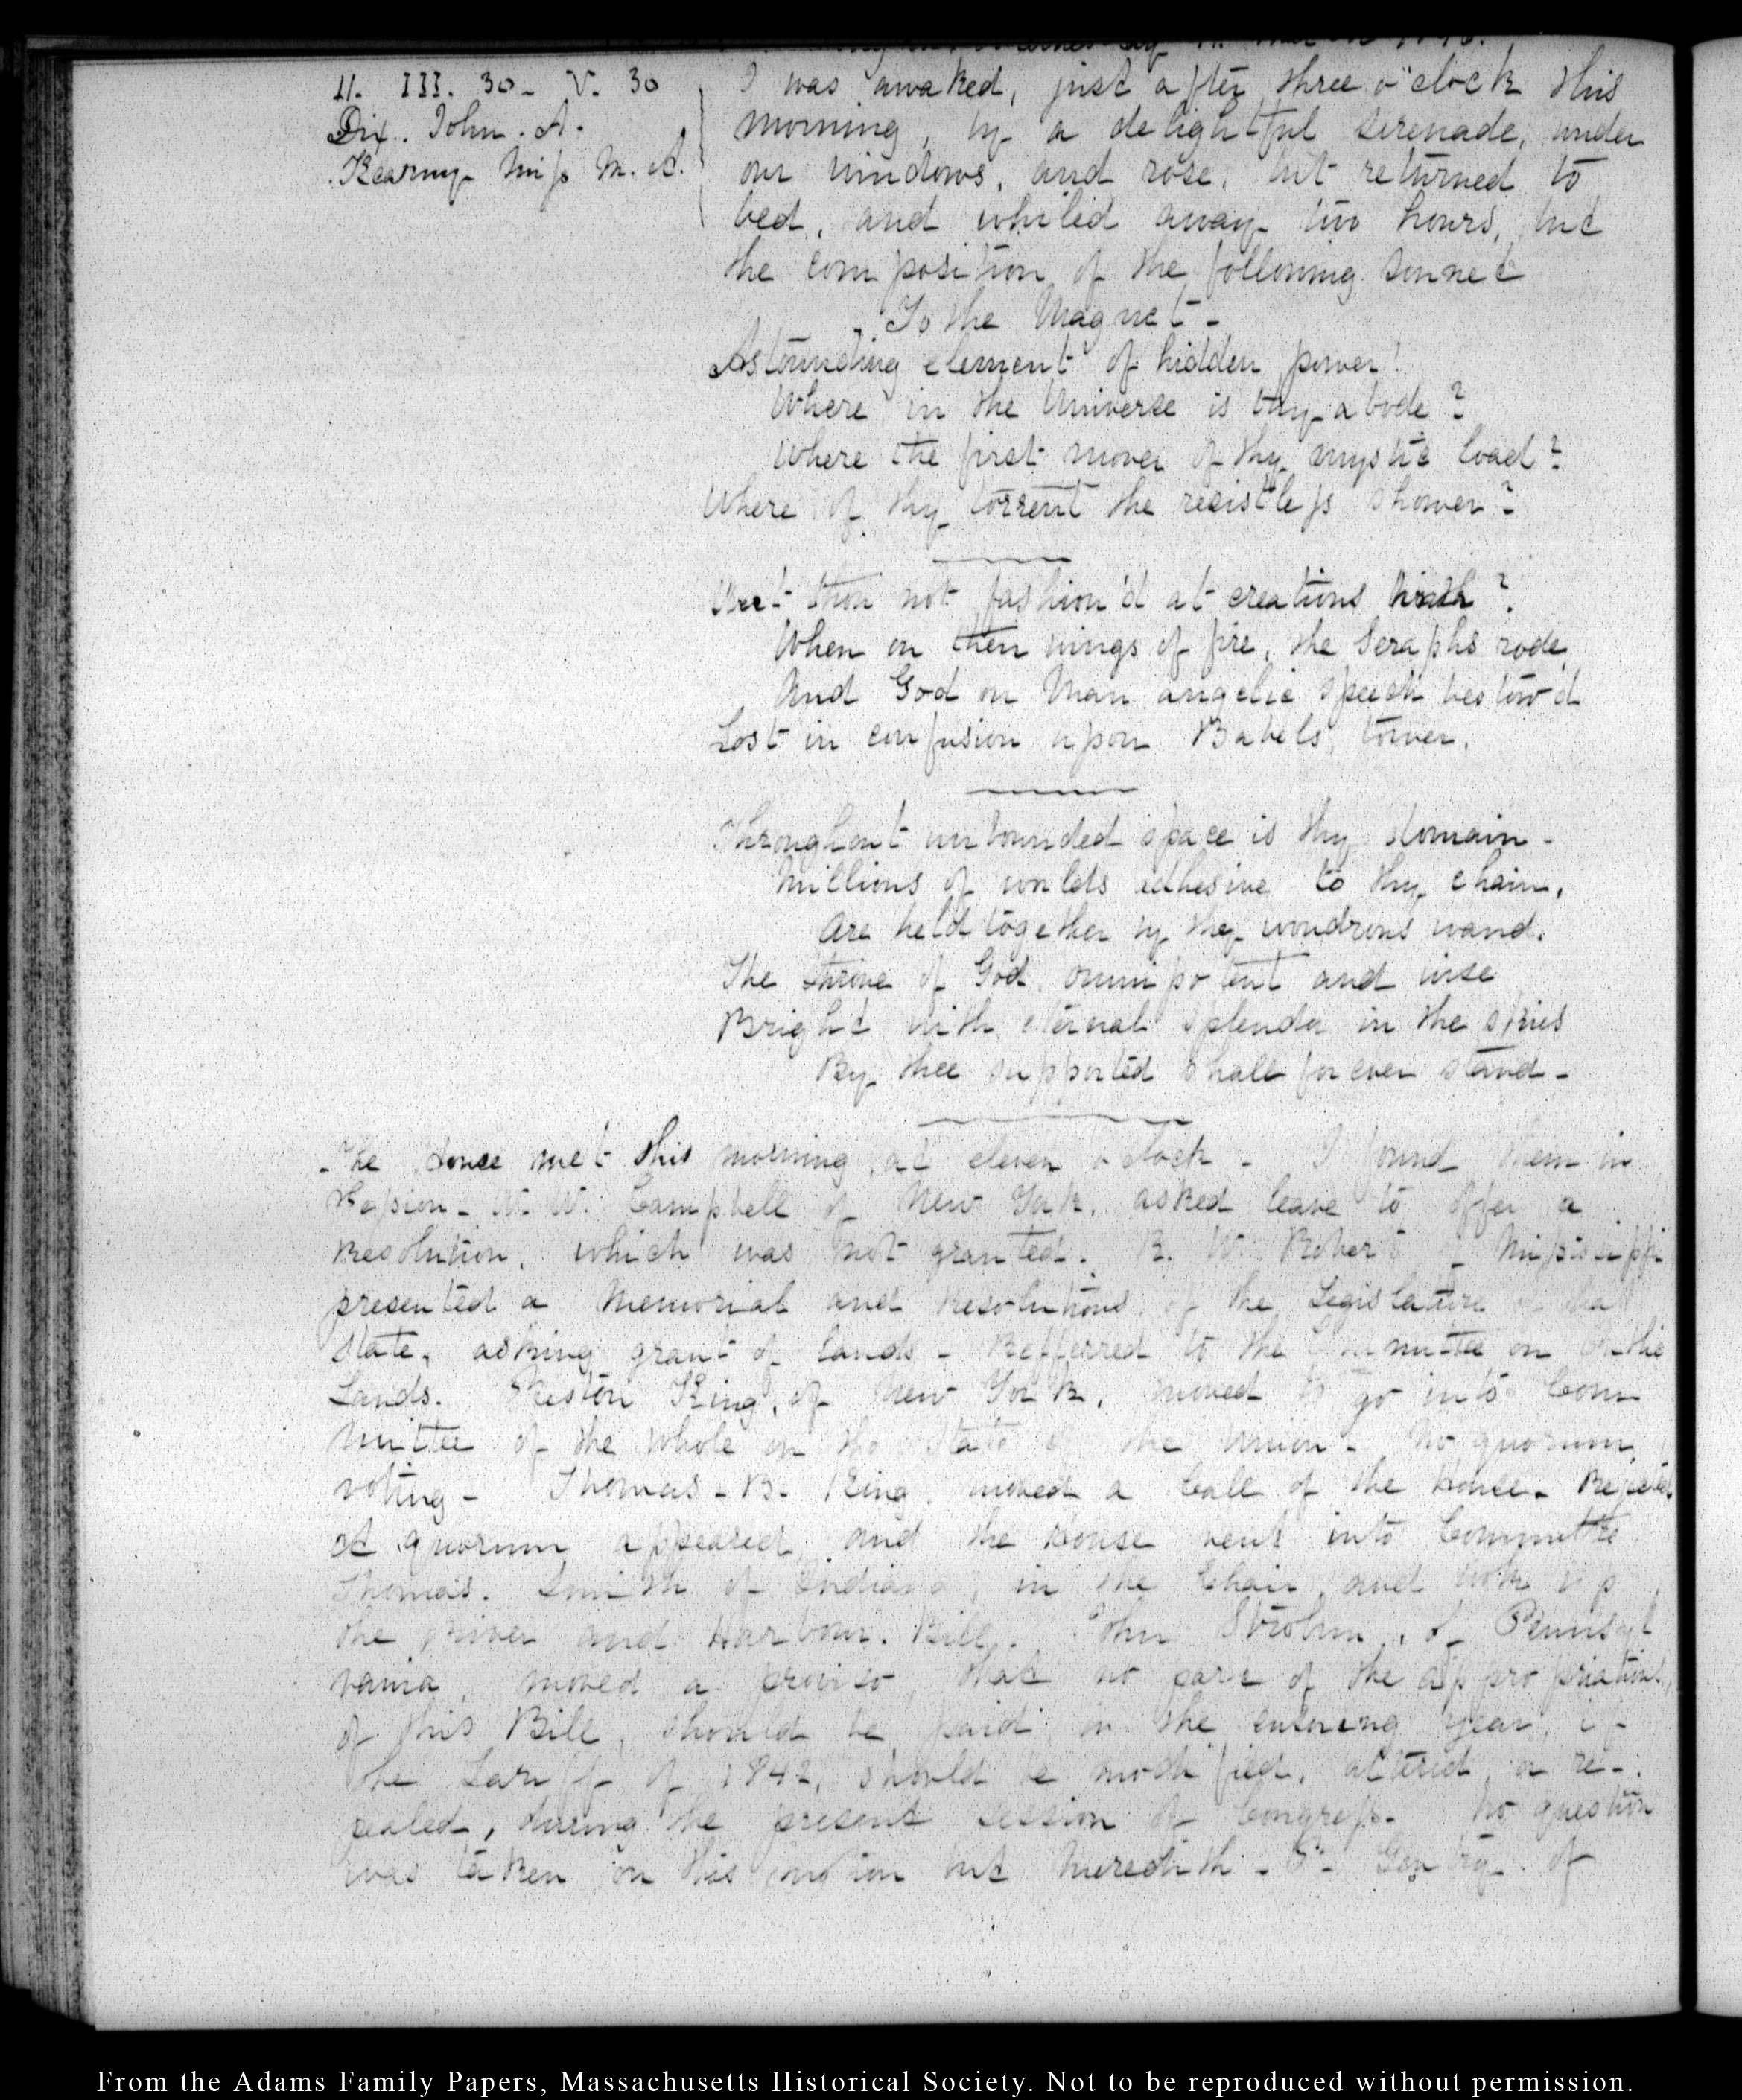 11. III. 30 - V. 30
Dix. John. A.
Kearny Miss M. A.
I was awaked, just after three o'clock this
morning, by a delightful serenade, under
our windows, and rose, but returned to
bed, and whiled away two hours, in
the composition of the following sonnet
To the Magnet -
Astounding element of hidden power!
Where in the Universe is thy abode?
Where the first mover of thy mystic load?
Where of thy torrent the resistless shower?
Wert thou not fashion'd at creations birth?
When on their wings of fire, the Seraphs rode
And God on Man angelic speech bestow'd
Lost in confusion upon Babels tower.
Throughout unbounded space is thy domain -
Millions of worlds adhesive to thy chain,
Are held together by thy wondrous wand.
The throne of God omnipotent and wise
Bright with eternal splendor in the skies
By thee supported shall forever stand -
The House met this morning at eleven o'clock - I found them in
Session - W. W. Campbell of New York, asked leave to offer a
Resolution, which was not granted. R. W. Roberts - Mississippi
presented a Memorial and Resolutions of the Legislature of that
State, asking grant of lands - Refferred to the Committee on Public
Lands. Preston King, of New York, moved to go into Com
mittee of the whole on the State of the Union - No quorum
voting - Thomas - B. King moved a Call of the House - Rejected
A quorum appeared and the House went into Committee
Thomas. Smith of Indiana, in the Chair, and took up
the River and Harbour. Bill. John Strohm, of Pennsyl
vania, moved a proviso, that no part of the appropriations,
of this Bill, should be paid in the ensuing year, if
the Tariff of 1842, should be modified, altered, or re-
pealed, during the present session of Congress - No question
was taken on this motion but Meredith - P - Gentry of
From the Adams Family Papers, Massachusetts Historical Society. Not to be reproduced without permission.